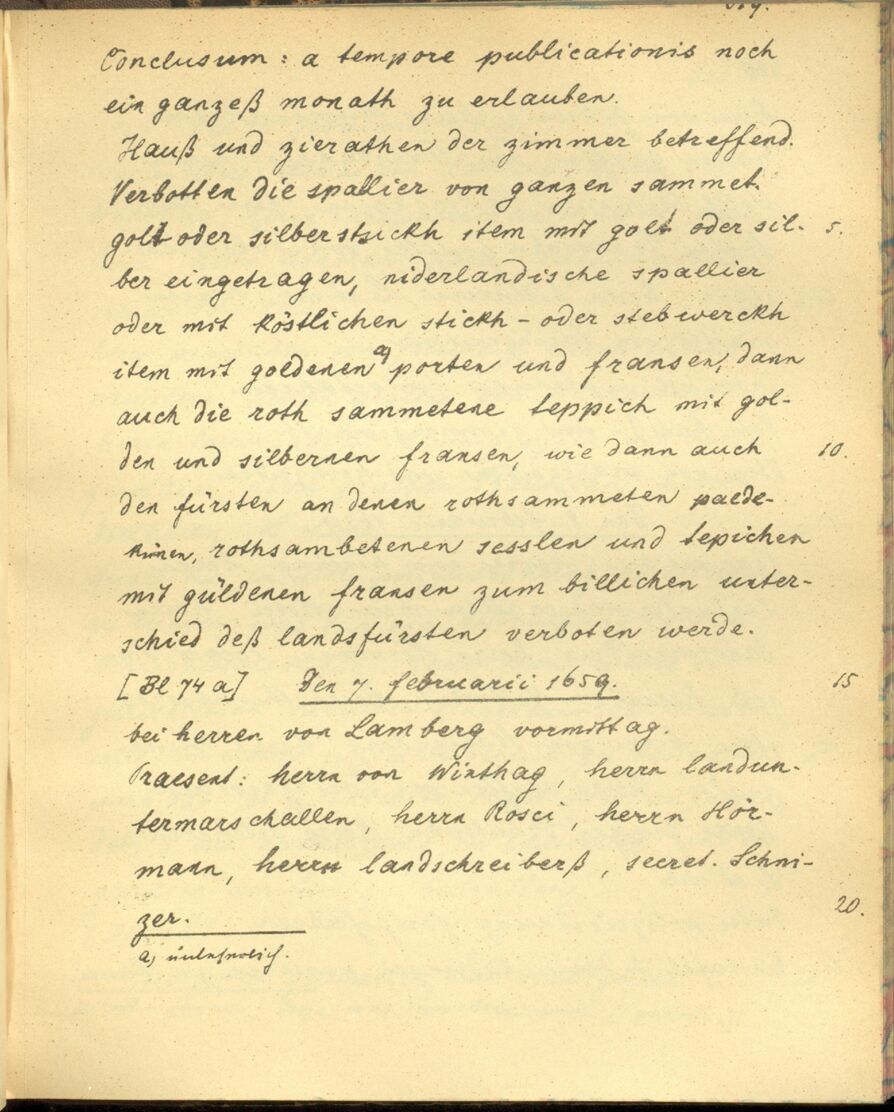 Conclusum : a tempore publicationis noch
ein ganzeß monath zu erlauben.
Hauß und zierathen der zimmer betreffend.
Verbotten die spallier von ganzen sammet.
golt oder silberstückh item mit golt oder sil- 5.
ber eingetragen, niderlandische spallier
oder mit köstlichen stickh- oder stebwerckh
item mit goldenen a) porten und fransen, dann
auch die roth sammetene teppich mit gol-
den und silbernen fransen, wie dann auch 10.
den fürsten an denen rothsammeten
rothsambetenen sesslen und tepichen
mit güldenen fransen zum billichen unter-
schied deß landsfürsten verboten werde.
[Bl 74 a] Den 7. februarii 1659. 15
bei herren von Lamberg vormittag.
Praesent: herrn von Winthag, herrn landun-
termarschallen, herrn Rosci, herrn Hör-
mann, herrn landschreiberß, secret. Schni-
zer. 20.
a) unleserlich.